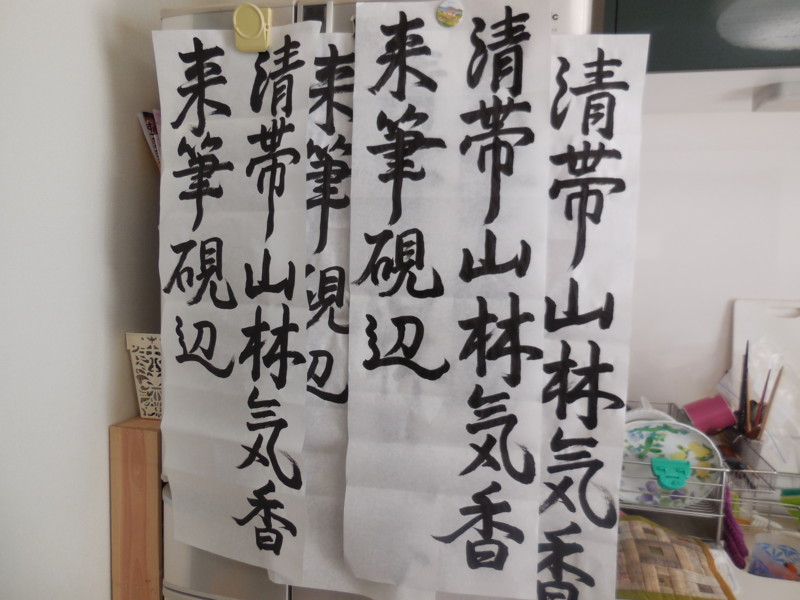 清帯山林気香
清帯山林気香
来筆硯辺
来筆硯辺
清帯山林気香
来筆硯辺